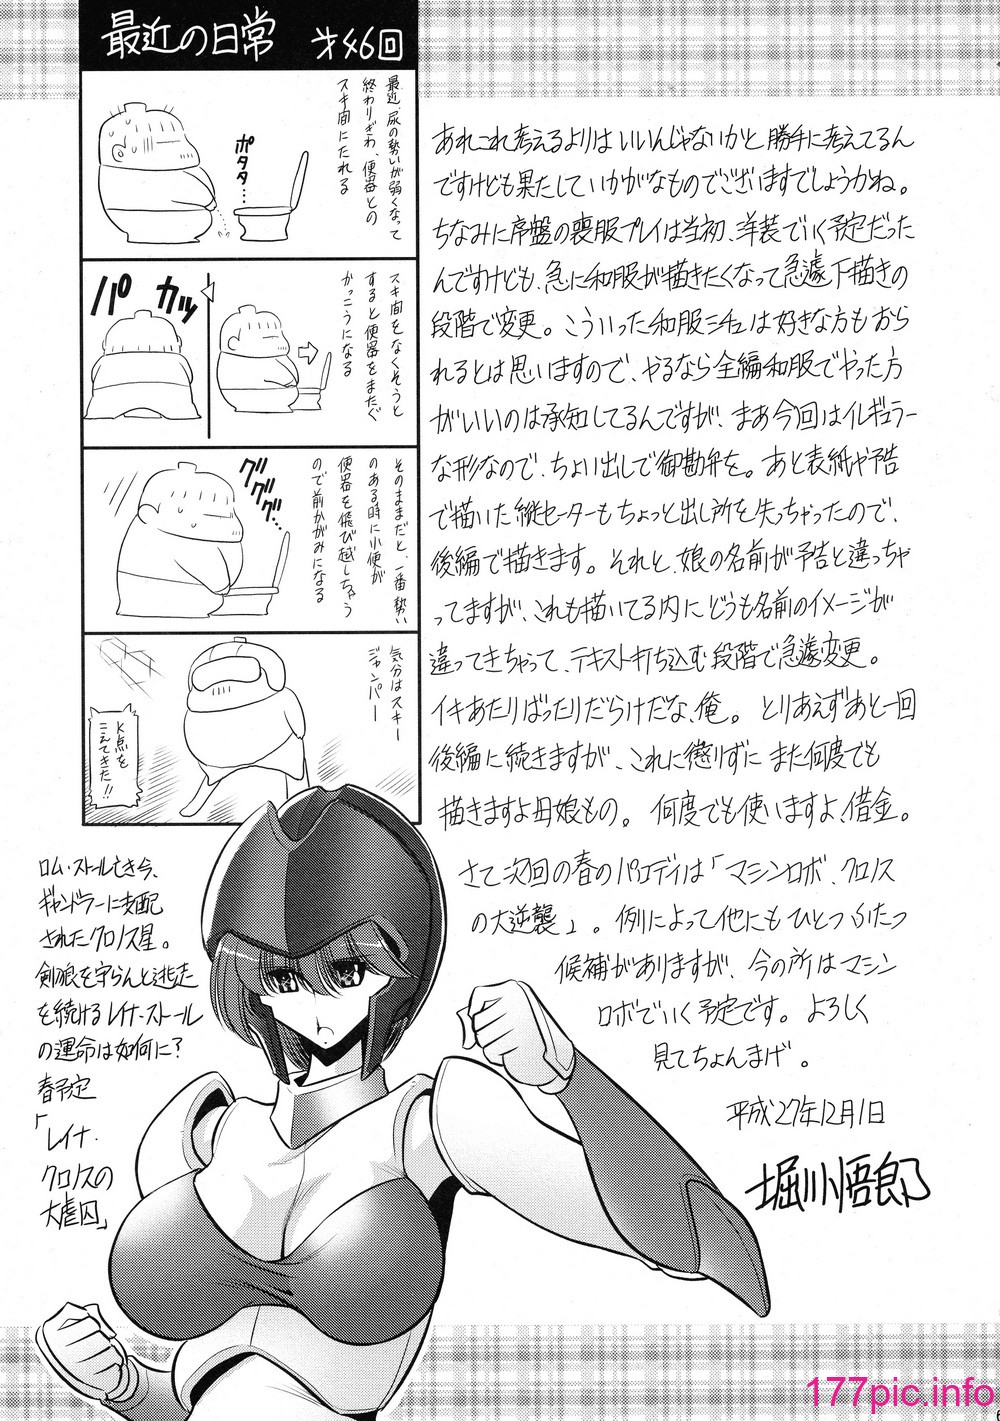 最近の日常 才46回
最近、尿の勢いが弱くなって
終わりぎわ、便器との
スキ間にたれる
ポタタ…
スキ間をなくそうと
すると便器をまたぐ
かっこうになる
カッ
パ
そのままだと、一番勢い
のある時に小便が
便器を飛び越しちゃう
ので前かがみになる
ググググ…
気分はスキー
ジャンパー
K点を
こえてきた!!
あれこれ考えるよりはいいんじゃないかと勝手に考えてるん
ですけども果たしていかがなものでございますでしょうかね。
ちなみに序盤の喪服プレイは当初、洋装でいく予定だった
んですけども、急に和服が描きたくなって急遽下描きの
段階で変更。こういった和服シチュは好きな方もおら
れるとは思いますので、やるなら全編和服でやった方
がいいのは承知してるんですが、まあ今回はイレギュラー
な形なので、ちょい出しで御勘弁を。あと表紙や予告
で描いた縦セーターもちょっと出し所を失っちゃったので、
後編で描きます。それと、娘の名前が予告と違っちゃ
ってますが、これも描いてる内にどうも名前のイメージが
違ってきちゃって、テキスト打ち込む段階で急遽変更。
イキあたりばったりだらけだな、俺。とりあえずあと一回
後編に続きますが、これに懲りずにまた何度でも
描きますよ母娘もの。何度でも使いますよ、借金。
さて次回の春のパロディは「マシンロボ、クロノス
の大逆襲」。例によって他にもひとつふたつ
候補がありますが、今の所はマシン
ロボでいく予定です。よろしく
見てちょんまげ。
平成27年12月1日
堀川悟郎
ロム・ストール亡き今、
ギャンドラーに支配
されたクロノス星。
剣狼を守らんと逃走
を続けるレイナ・ストール
の運命は如何に?
春予定
「レイナ・
クロノスの
大虐囚」
177pic.info